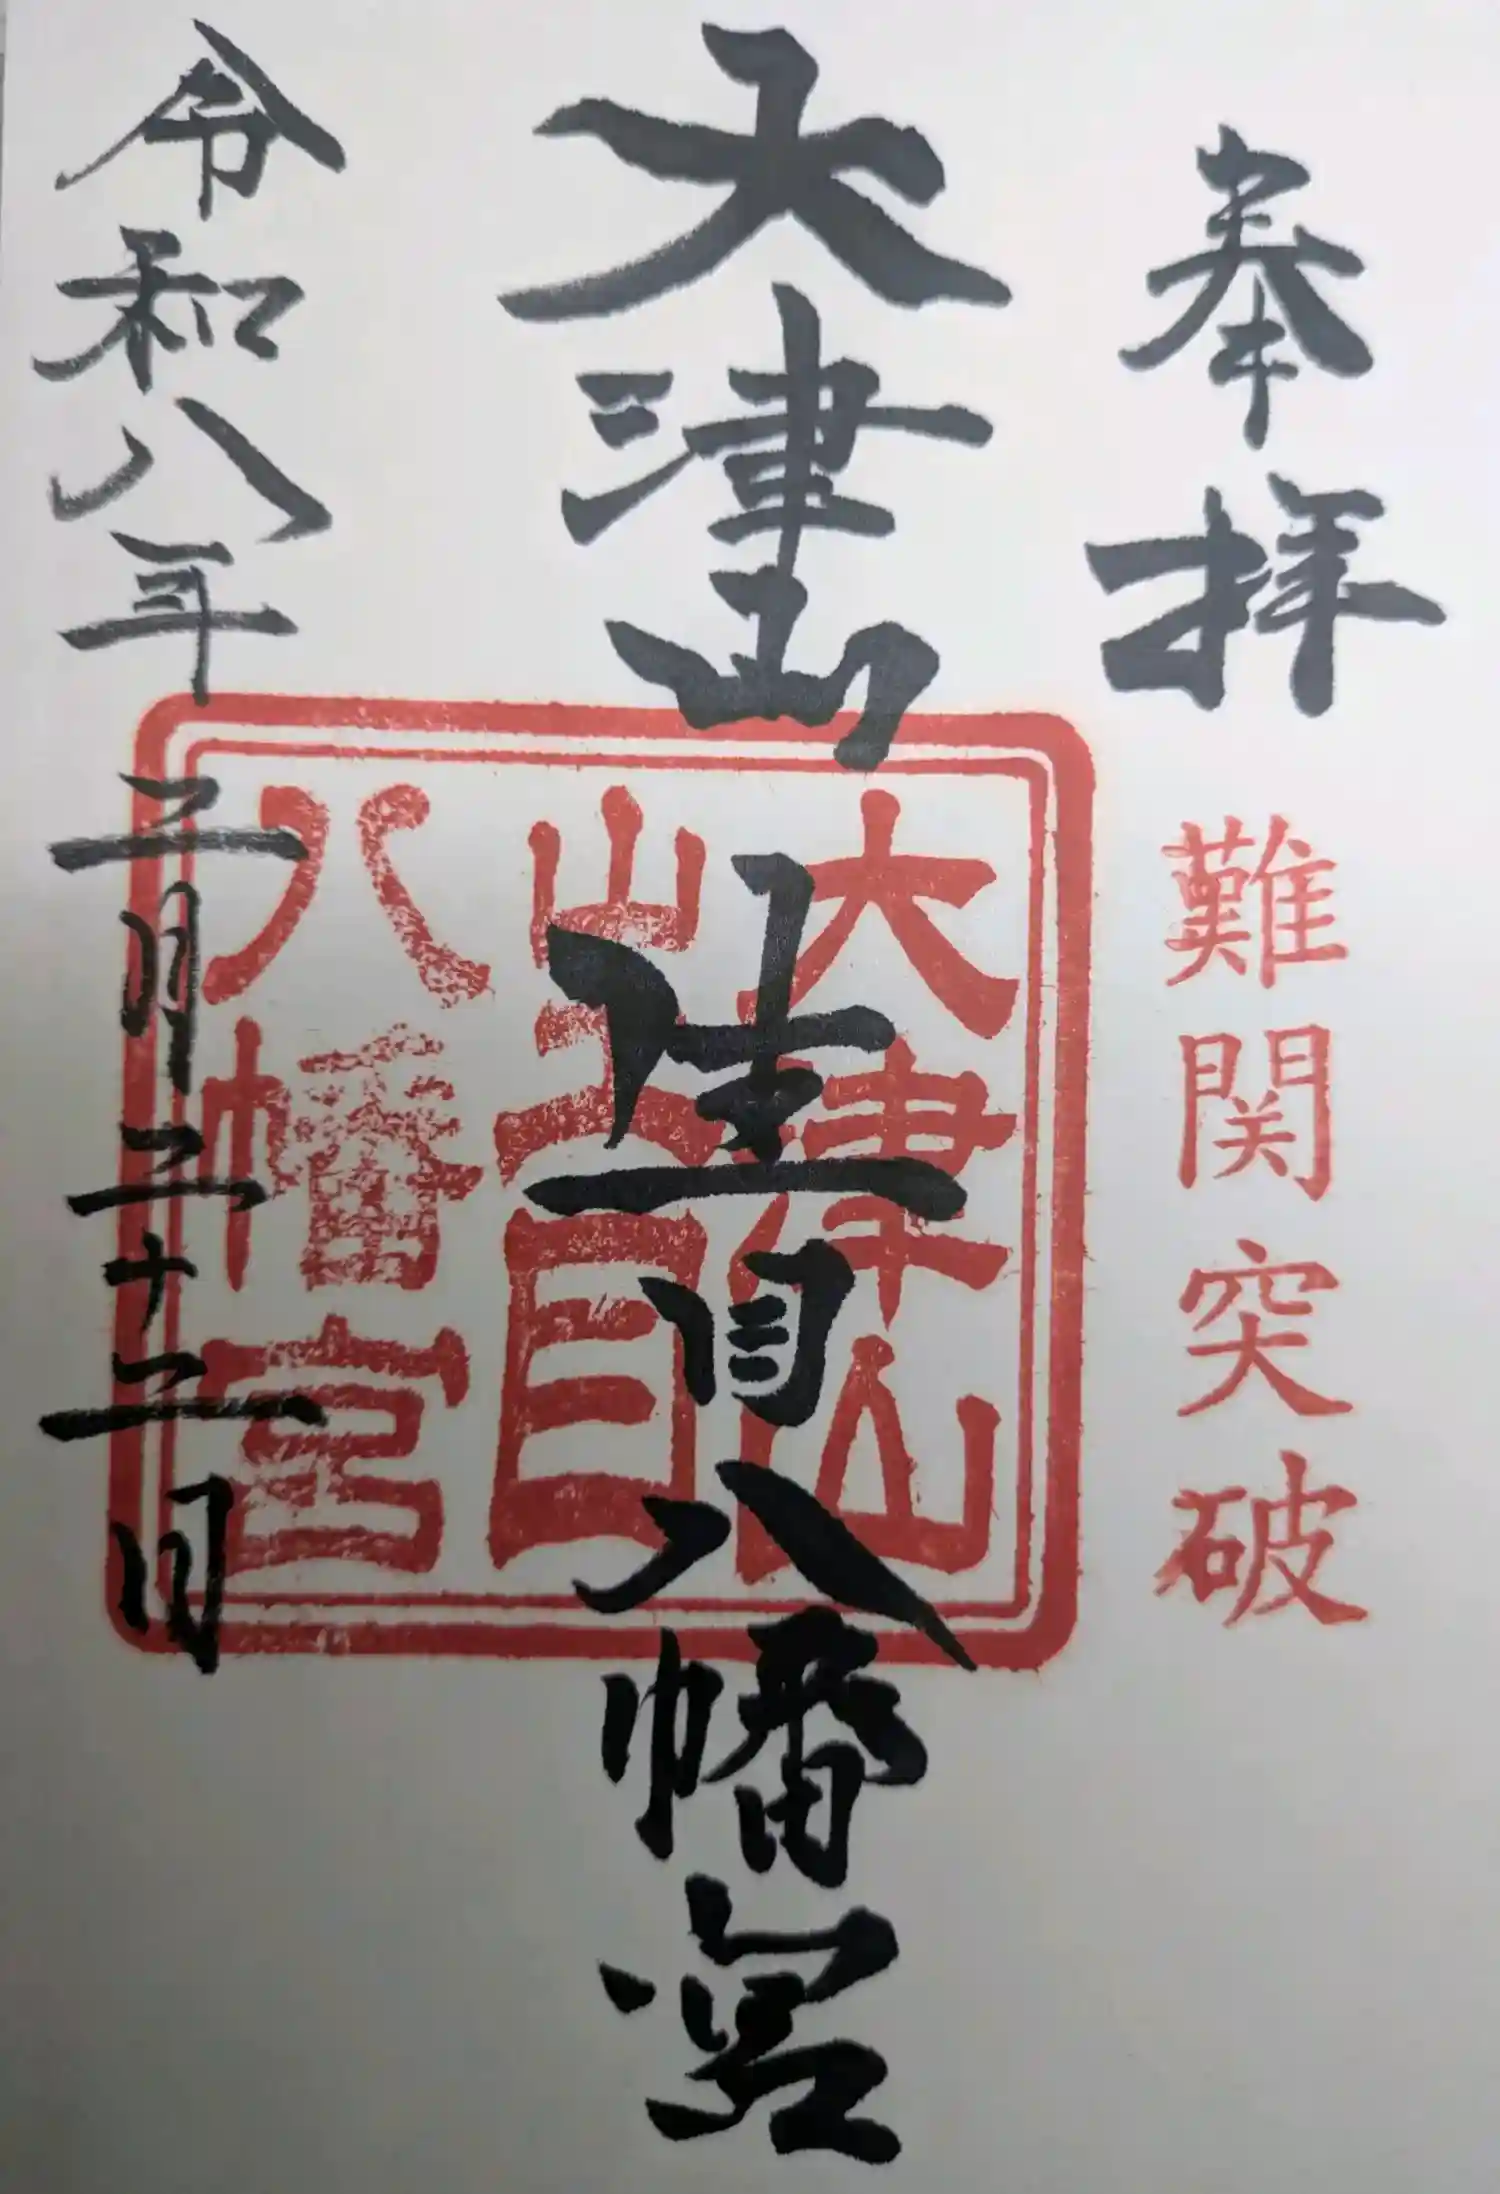 奉拝
難関突破
大津山
生目八幡宮
大津山
生目
八幡宮
令和八年二月二十二日